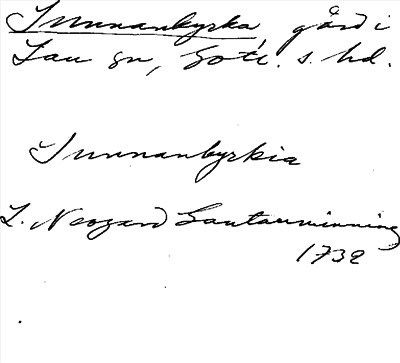 Sunnankyrka, gård i
Lau sn, Gotl. s. hd.
Sunnankyrkia
L. Neogard Gautauminning
1732